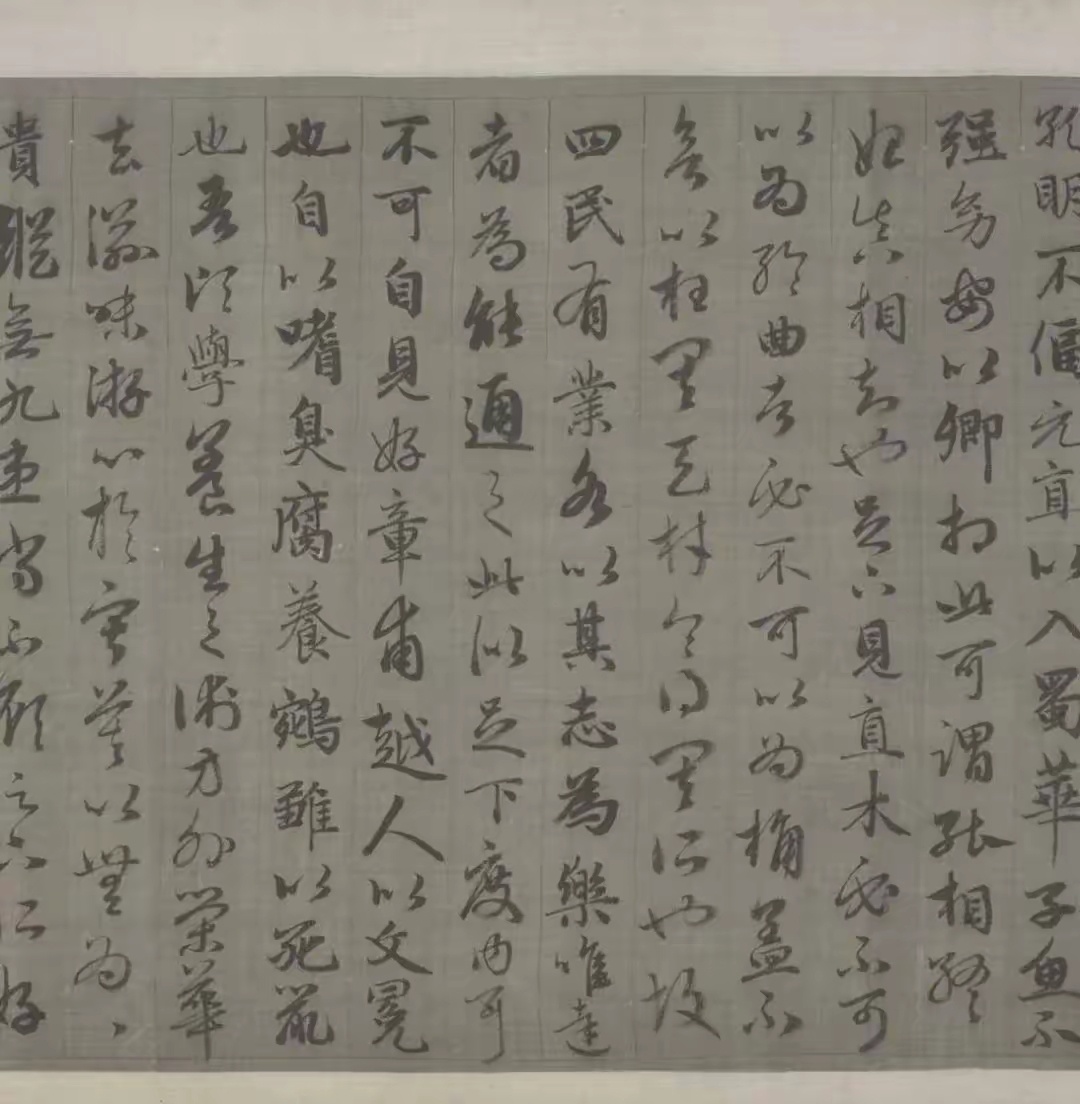 孔明不偪元直以入蜀華子魚不
强幼安以卿相此可謂能相終
始真相知也足下見直木必不可
以為輪曲者必不可以為桷蓋不
欲以枉其天材令得其所也故
四民有業各以其志為樂唯達
者為能通之此似足下度内耳
不可自見好章甫越人以文冕
也自以嗜臭腐養鵷雛以死鼠
也吾頃學養生之術方外榮華
去滋味游心於寂莫以無為〻
貴縱無九患尚不顧足下所好